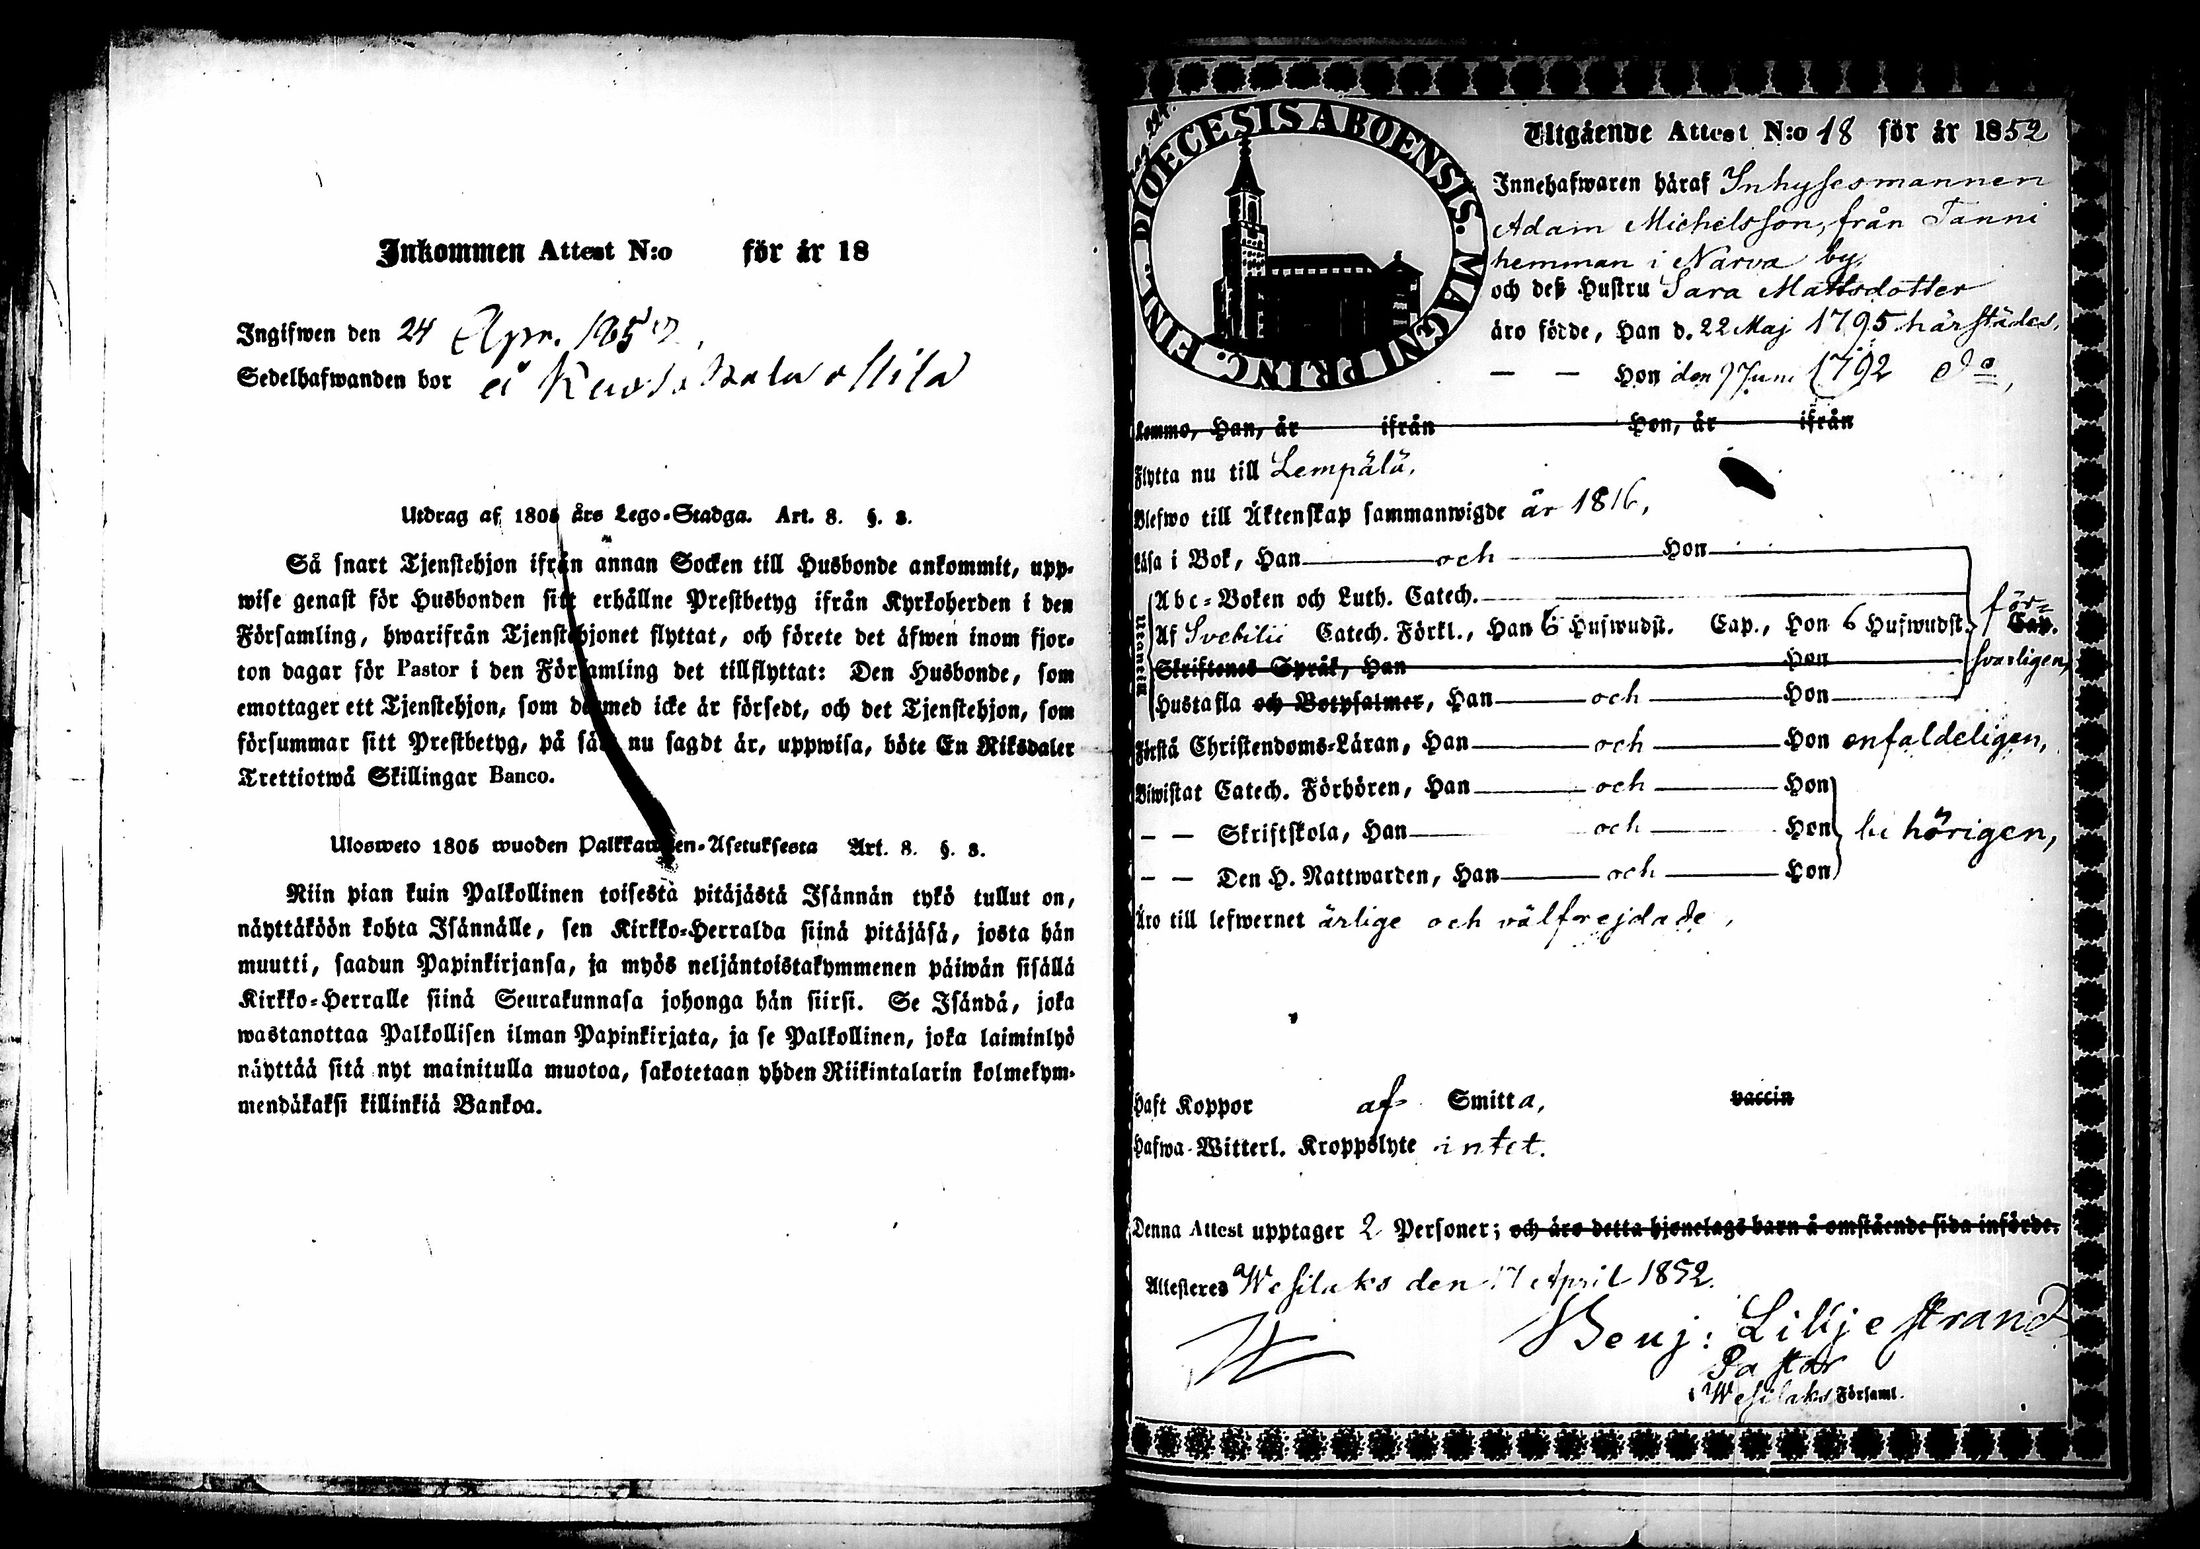 Inkommen Attest N:o för år 18
Ingifwen den 24 Apr. 1852.
Sedelhafwanden bor å
Utdrag af 1805 års Lego-Stadga. Art. 8. §. 3.
Så snart Tjenstehjon ifrån annan Socken till Husbonde ankommit, upp-
wise genast för Husbonden sitt erhållne Prestbetyg ifrån Kyrkoherden i den
Församling, hwarifrån Tjenstehjonet flyttat, och förete det äfwen inom fjor-
ton dagar för Pastor i den Församling det tillflyttat: Den Husbonde, som
emottager ett Tjenstehjon, som dermed icke är försedt, och det Tjenstehjon, som
försummar sitt Prestbetyg, på sätt nu sagdt är, uppwisa, böte En Riksdaler
Trettiotwå Skillingar Banco.
Ulosweto 1805 wuoden Palkkawäen-Asetuksesta Art. 8. §. 3.
Niin pian kuin Palkollinen toisesta pitäjästä Isännän tykö tullut on,
näyttäköön kohta Isännälle, sen Kirkko-Herralda siinä pitäjäsä, josta hän
muutti, saadun Papinkirjansa, ja myös neljäntoistakymmenen päiwän sisällä
Kirkko-Herralle siinä Seurakunnasa johonga hän siirsi. Se Isändä, joka
wastanottaa Palkollisen ilman Papinkirjata, ja se Palkollinen, joka laiminlyö
näyttää sitä nyt mainitulla muotoa, sakotetaan yhden Riikintalarin kolmekym-
mendäkaksi killinkiä Bankoa.
DIOECESIS ABOENSIS. MAGNI PRINC. FINL.
Utgående Attest N:o 18 för år 1852
Innehafwaren häraf Inhysesmannen
Adam Michelsson, från Tanni
hemman i Narva by,
och deß Hustru Sara Mattsdotter
äro födde, Han d. 22 Maj 1795 härstädes,
— — Hon den 9 Juni 1792 do,
Kommo, Han, år ifrån Hon, år ifrån
Flytta nu till Lempälä,
Blefwo till Äktenskap sammanwigde år 1816,
Läsa i Bok, Han och Hon
Utantill Abc-Boken och Luth. Catech.
Af Svebilii Catech. Förkl., Han 6 Hufwudst. Cap., Hon 6 Hufwudst. Cap. för=
Skriftenes Språk, Han Hon svarligen,
Hustafla och Botpsalmer, Han och Hon
Förstå Christendoms-Läran, Han och Hon enfaldeligen,
Biwistat Catech. Förhören, Han och Hon
— — Skriftskola, Han och Hon behörigen,
— — Den H. Nattwarden, Han och Hon
Äro till lefwernet ärlige och välfrejdade,
Haft Koppor af Smitta, vaccin
Hafwa Witterl. Kroppslyte intet.
Denna Attest upptager 2 Personer; och äro detta hjonelags barn å omstående sida införde.
Attesteres Wesilaks den 17 April 1852.
Benj: Liljestrand
Pastor
i Wesilaks Församl.